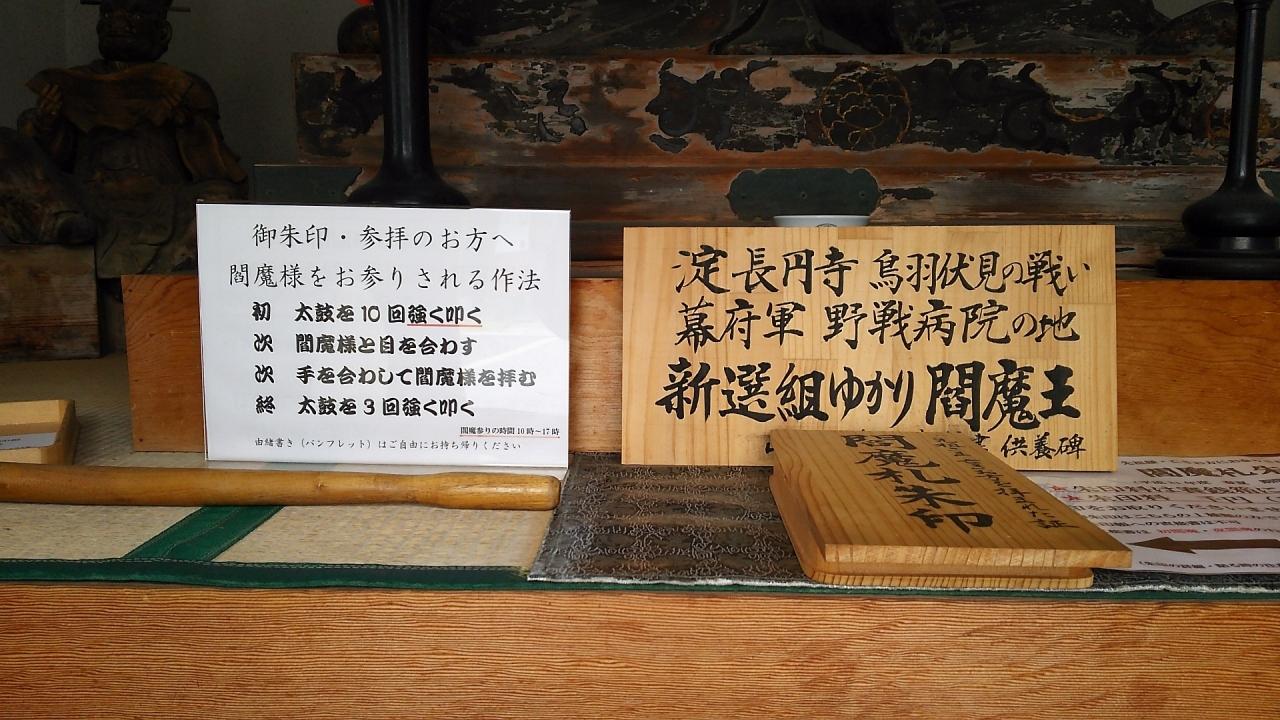 御朱印・参拝のお方へ
閻魔様をお参りされる作法
初 太鼓を10回強く叩く
次 閻魔様と目を合わす
次 手を合わして閻魔様を拝む
終 太鼓を3回強く叩く
閻魔参りの時間10時～17時
由緒書き（パンフレット）はご自由にお持ち帰りください
淀長円寺 鳥羽伏見の戦い
幕府軍 野戦病院の地
新選組ゆかり閻魔王
供養碑
閻魔札朱印